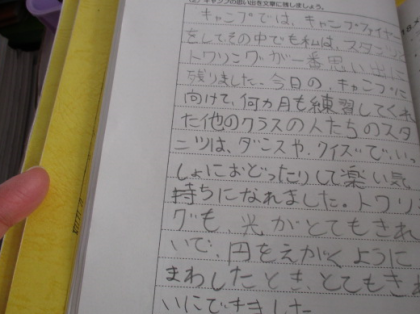 キャンプの思い出を文章に残しましょう。
キャンプでは、キャンプファイヤー
をして、その中でも私は、スタンツ
トワリングが一番思い出に
残りました。今日のキャンプに
向けて、何カ月も練習してくれ
た他のクラスの人たちのスタ
ンツは、ダンスや、クイズでいっ
しょにおどったりして楽い気
持ちになれました。トワリン
グも、光がとてもきれ
いで、円をえがくように
まわしたとき、とてもきれ
いにできました